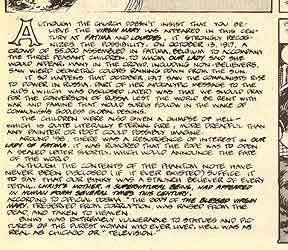 ALTHOUGH THE CHURCH DOESN'T INSIST THAT YOU BE-
LIEVE THE VIRGIN MARY HAS APPEARED IN THIS CEN-
TURY AT FATIMA AND LOURDES, IT STRONGLY RECOG-
NIZES THE POSSIBILITY. ON OCTOBER 13, 1917, A
CROWD OF 55,000 ASSEMBLED IN FATIMA, BELGIUM TO ACCOMPANY
THE THREE PEASANT CHILDREN, TO WHOM OUR LADY SAID SHE
WOULD APPEAR. MANY IN THE CROWD, INCLUDING NON-BELIEVERS,
SAW WEIRD GEOMETRIC COLORS RAINING DOWN FROM THE SUN.
IT SO HAPPENS THAT OCTOBER 1917 SAW THE COMMUNISTS RISE
TO POWER IN RUSSIA. PART OF HER APOCALYPTIC MESSAGE TO THE
KIDS (WHICH WAS DISCLOSED LATER) WAS THAT WE SHOULD PRAY
FOR THE CONVERSION OF RUSSIA LEST THE WORLD BE RENT WITH
WAR AND FAMINE THAT WOULD SURELY FOLLOW IN THE WAKE OF
COMMUNISM'S GODLESS GLOBAL DESIGNS.
THE CHILDREN WERE ALSO GIVEN A GLIMPSE OF HELL—
WHICH IS QUITE LITERALLY ETERNAL FIRE; MORE DREADFUL THAN
ANY PAINTER OR POET COULD POSSIBLY IMAGINE.
AROUND '58 THERE WAS A RESURGENCE OF INTEREST IN OUR
LADY OF FATIMA. IT WAS RUMORED THAT THE POPE WAS TO OPEN
A SEALED LETTER SHORTLY, WHICH WOULD ANNOUNCE THE FATE
OF THE WORLD.
ALTHOUGH THE CONTENTS OF THE PHANTOM NOTE HAVE
NEVER BEEN DISCLOSED (IF IT EVER EXISTED) SUFFICE IT
TO SAY THAT ONE BINKY WAS A STAUNCH BELIEVER OF EVERY
DETAIL. CHRIST'S MOTHER, A SUPERNATURAL BEING, HAD APPEARED
IN HUMAN FORM SEVERAL TIMES THIS CENTURY.
ACCORDING TO OFFICIAL DOGMA, "THE BODY OF THE BLESSED VIRGIN
MARY, PRESERVED FROM CORRUPTION, WAS RAISED FROM THE
DEAD, AND TAKEN TO HEAVEN."
BINKY WAS EXTREMELY VULNERABLE TO STATUES AND PIC-
TURES OF THE PUREST WOMAN WHO EVER LIVED. HELL WAS AS
REAL AS CHICAGO OR "TELEVISION."